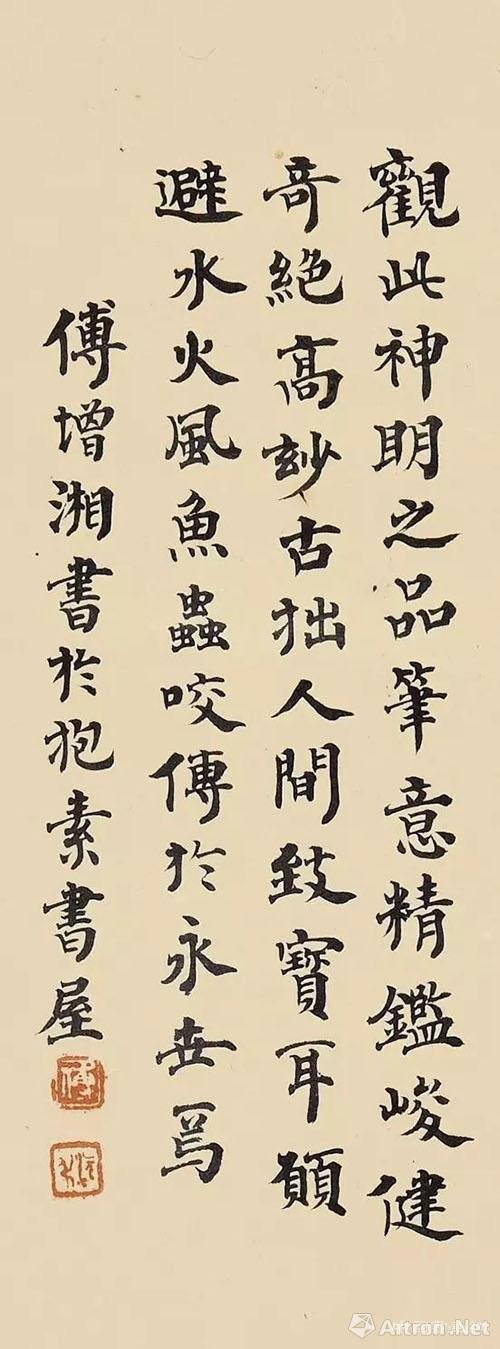 觀此神明之品筆意精鑑峻健
奇絶高玅古拙人間致寶耳願
避水火風魚蟲咬傳於永世焉
傅增湘書於抱素書屋
傅
Artron.Net